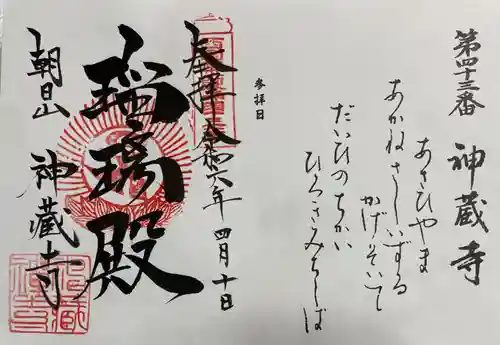 第四十三番　神蔵寺
あさひやま
あかねさしいずる
かげそいて
だいひのちかい
ひろきみちしば
参拝日
奉拝 令和六年四月十日
瑠璃殿
朝日山 神蔵寺